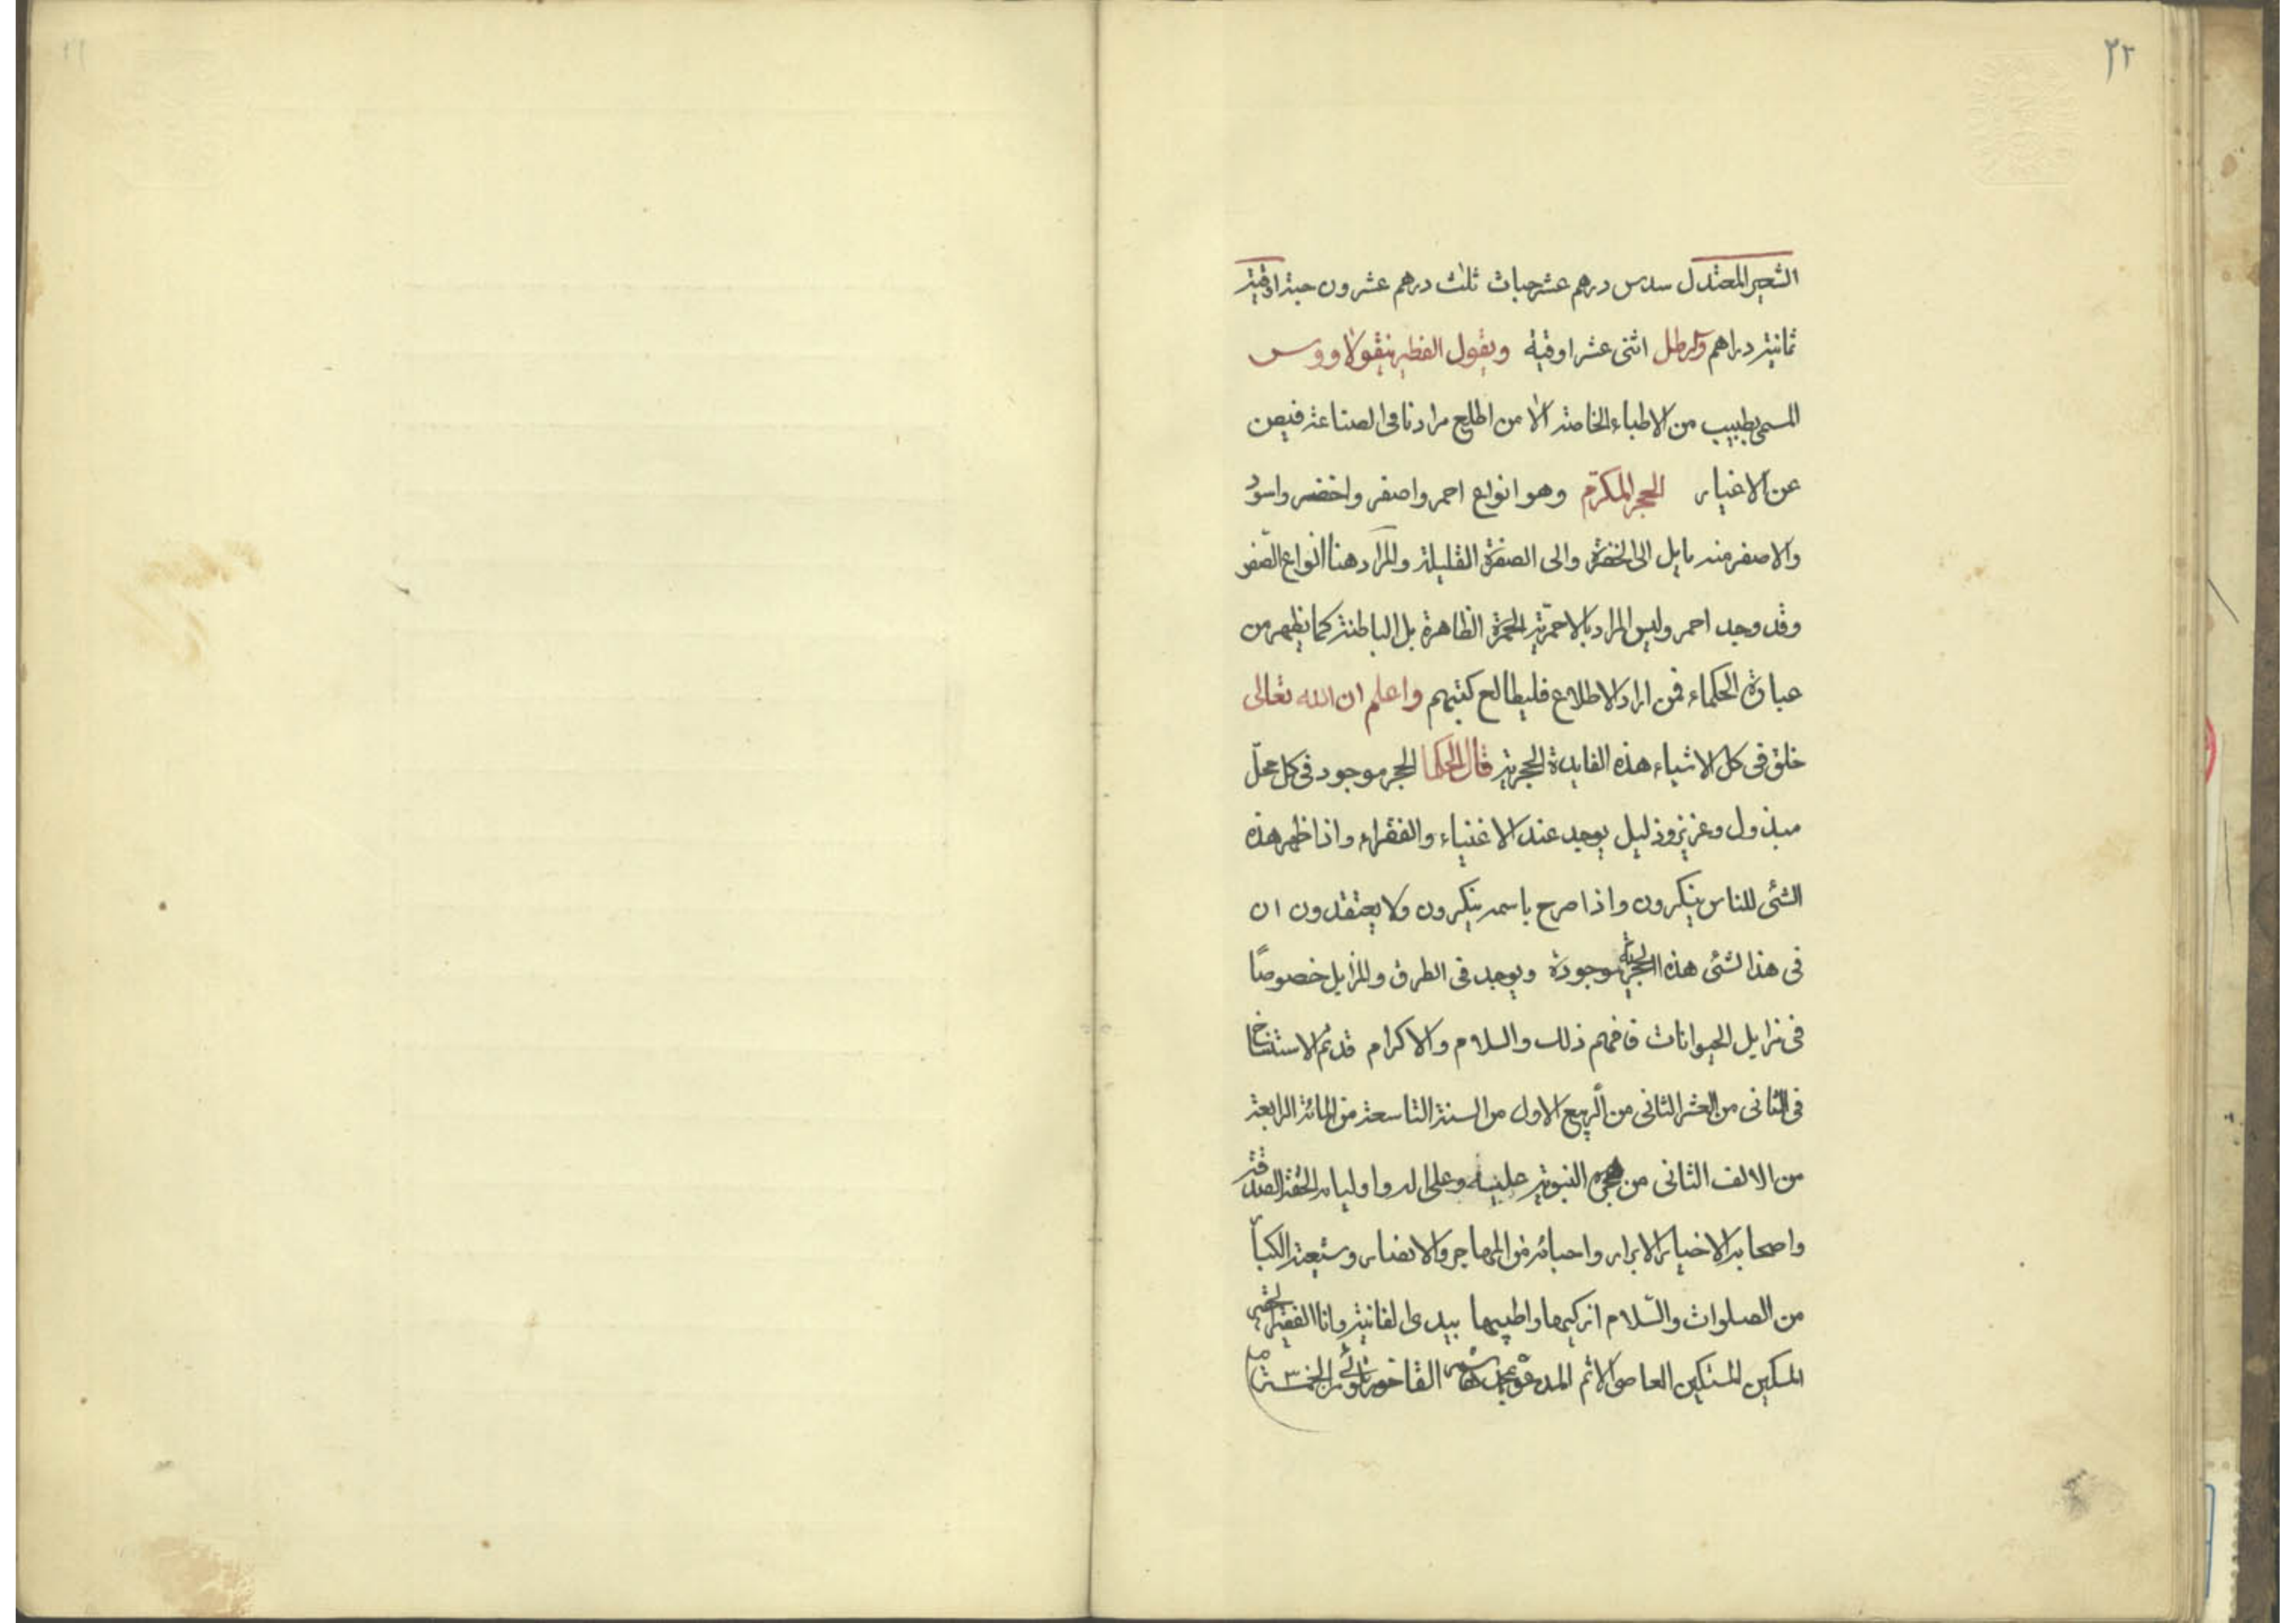 ٢٢
الشعير المعتدل سدس درهم عشر حبات ثلث درهم عشرون حبة اوقية
ثمانية دراهم والرطل اثنى عشر اوقية ويقول الفطير نيقولاووس
المسمى بطبيب من الاطباء الخاصة الا من اطلع مرادنا فى الصناعة فيصن
عن الاغيار الحجر المكرم وهو انواع احمر واصفر واخضر واسود
والاصفر منه مايل الى الخضرة والى الصفرة القليلة والمراد هنا انواع الصفر
وقد وجد احمر وليس المراد بالاحمرية الحمرة الظاهرة بل الباطنة كما يظهر من
عبارة الحكماء فمن اراد الاطلاع فليطالع كتبهم واعلم ان الله تعالى
خلق فى كل الاشياء هذه الفايدة الحجرية قال الحكما الحجر موجود فى كل محلّ
مبذول وعزيز وذليل يوجد عند الاغنياء والفقراء واذا ظهر هذه
الشئ للناس ينكرون واذا صرح باسمه ينكرون ولا يعتقدون ان
فى هذا الشئ هذه الحجرية موجودة ويوجد فى الطرق والمزايل خصوصًا
فى مزايل الحيوانات فافهم ذلك والسلام والاكرام قد تم الاستنساخ
فى الثانى من العشر الثانى من الربيع الاول من السنة التاسعة من المائة الرابعة
من الالف الثانى من هجرة النبوية عليه وعلى اله واوليائه الصدقة
واصحابه الاخيار الابرار واحبائه من المهاجر والانصار وشيعته الكبار
من الصلوات والسّلام ازكيها واطيبها بيدى الفانية وانا الفقير الحقير
المسكين المستكين العاصى الاثم المدعو بمحمد